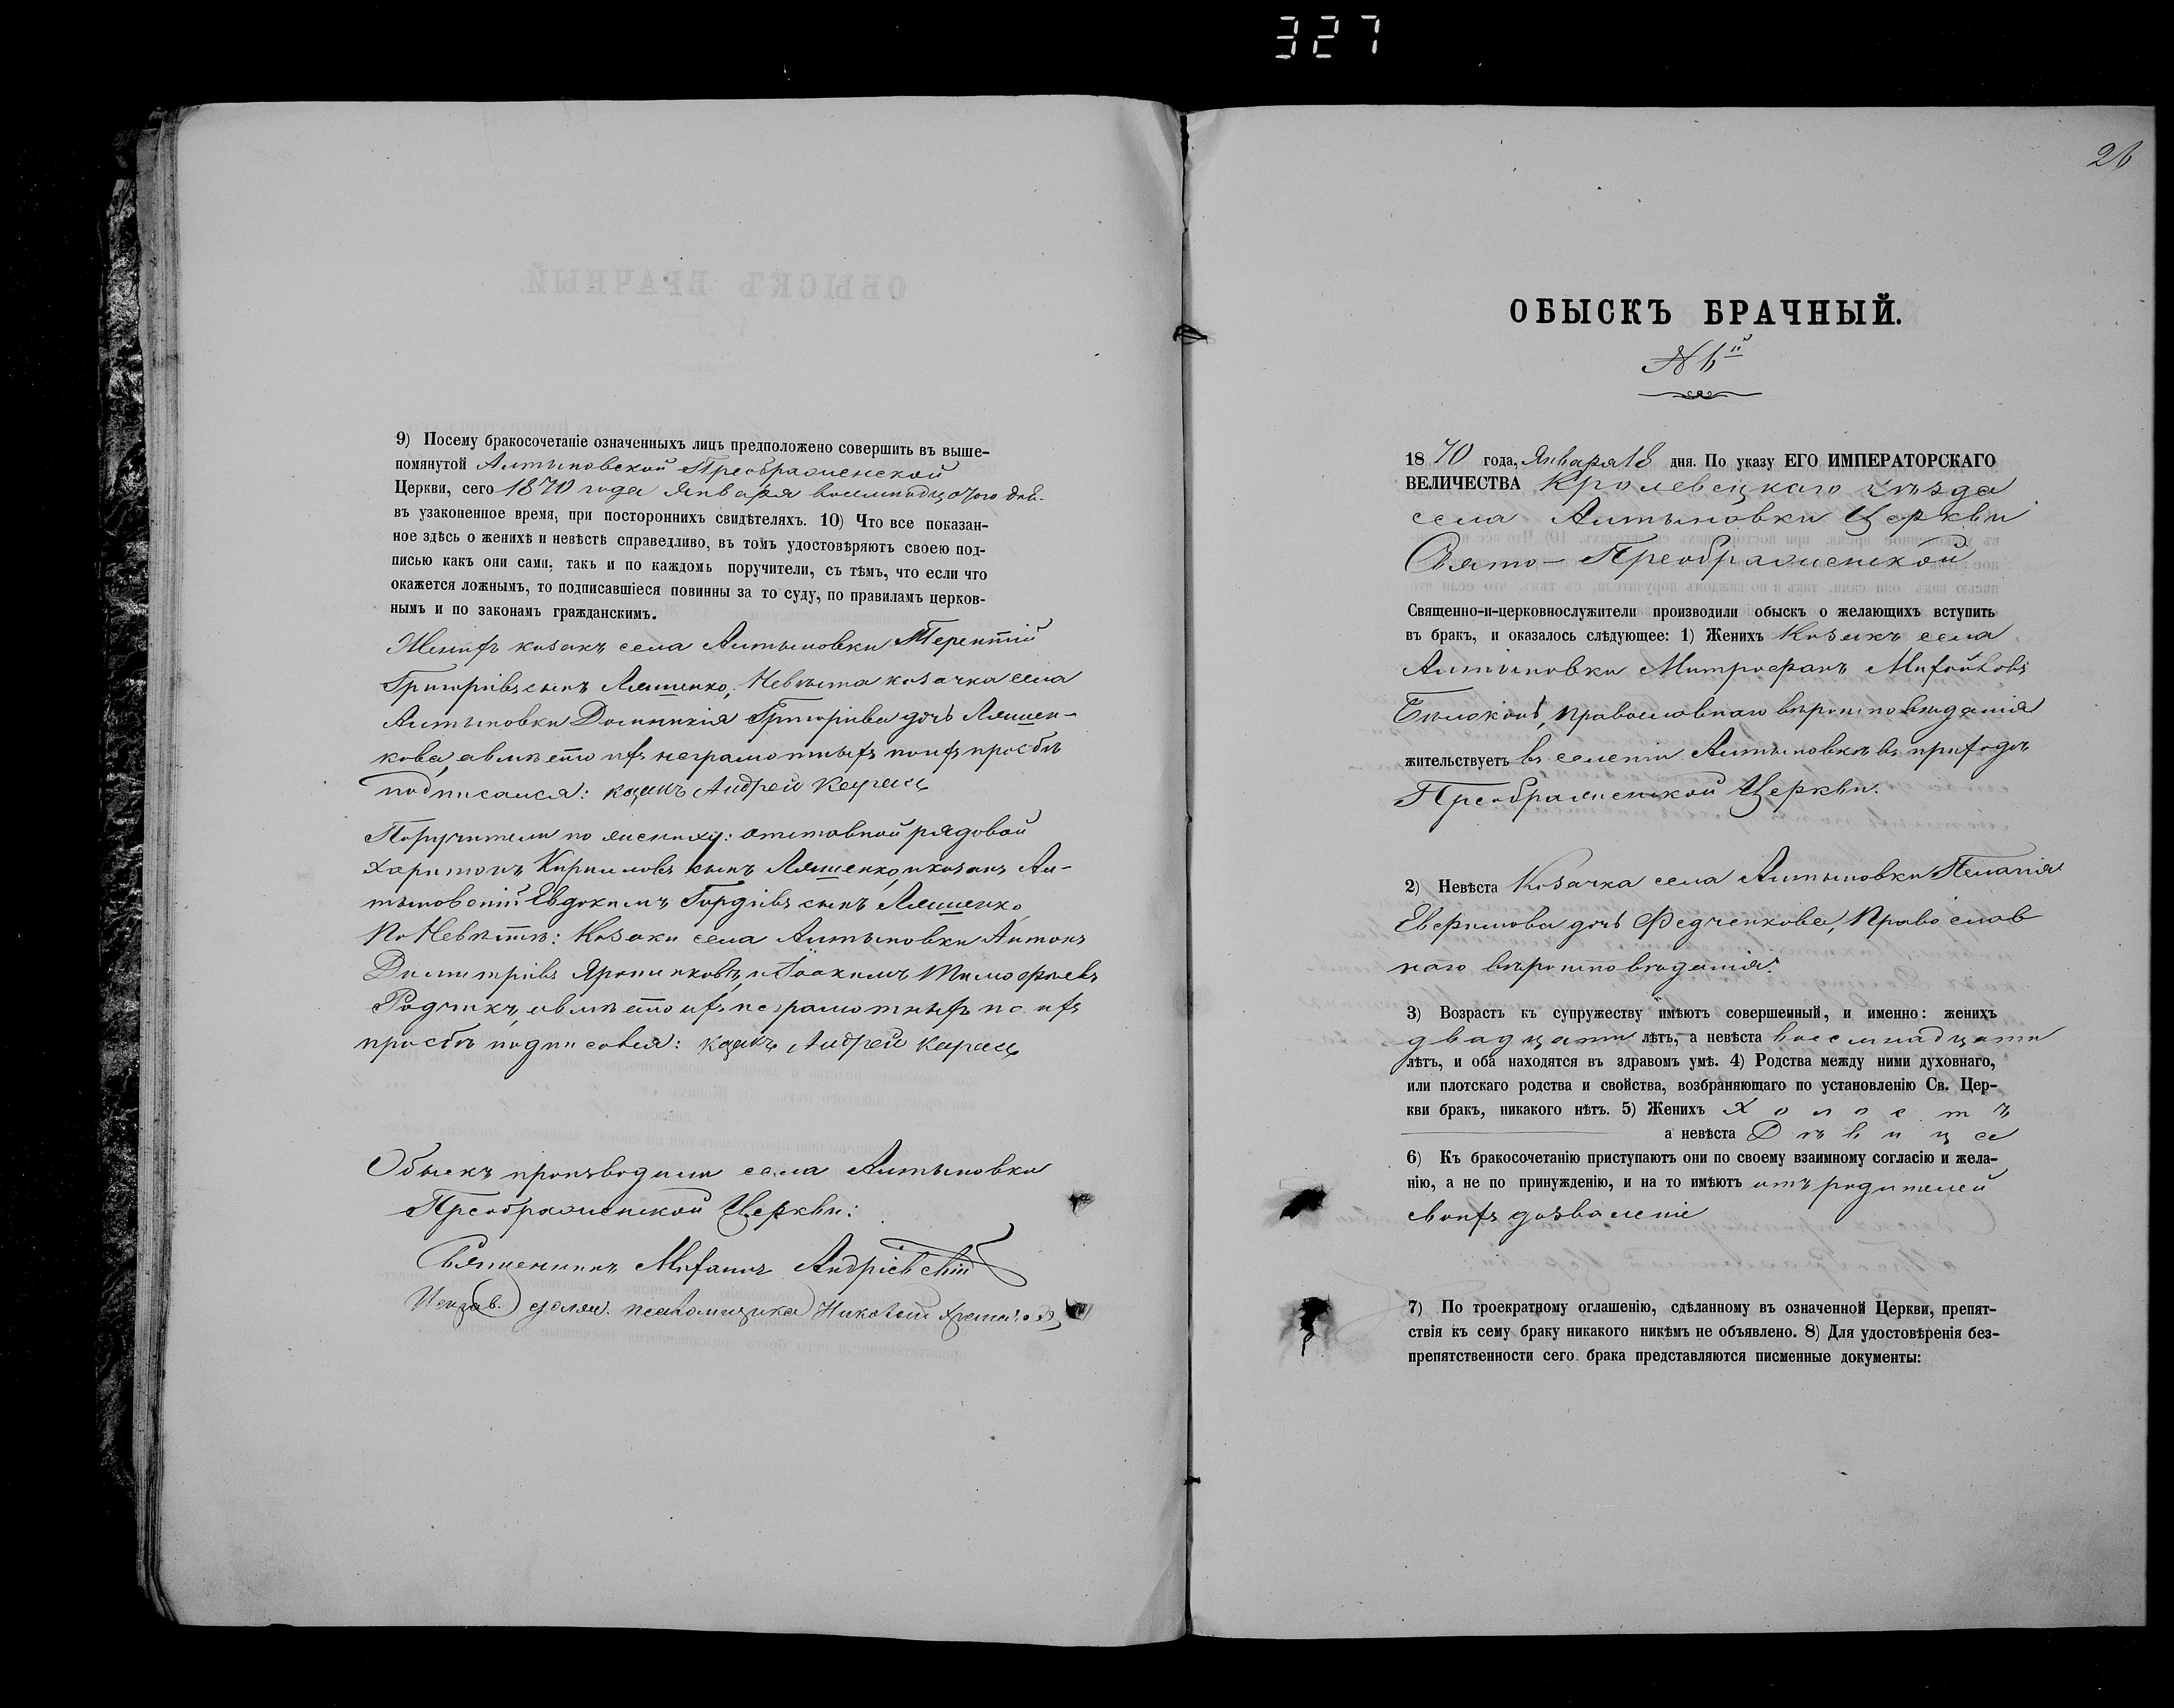 327
ОБЫСКЪ БРАЧНЫЙ.
9) Посему бракосочетаніе означенныхъ лицъ предположено совершить въ выше-
помянутой Алтыновской Преображенской
Церкви, сего 1870 года Января восемнадцатого дня
въ узаконенное время, при постороннихъ свидѣтеляхъ. 10) Что все показан-
ное здѣсь о женихѣ и невѣстѣ справедливо, въ томъ удостовѣряютъ своею под-
писью какъ они сами, такъ и по каждомъ поручители, съ тѣмъ, что если что
окажется ложнымъ, то подписавшіеся повинны за то суду, по правиламъ церков-
нымъ и по законамъ гражданскимъ.
Женихъ козакъ села Алтыновки Терентій
Григоріевъ сынъ Ляшенко, Невѣста козачка села
Алтыновки Домникія Григоріева дочь Ляшен-
кова, а вмѣсто ихъ неграмотныхъ по ихъ прозбѣ
подписался: козакъ Андрей
Поручители по жениху: отставной рядовой
Харитонъ Кириловъ сынъ Ляшенко, и козакъ Ал-
тыновскій Евдокимъ Гордіевъ сынъ Ляшенко
По Невѣстѣ: Козаки села Алтыновки Антонъ
Димитріевъ и Іоакимъ Тимофѣевъ
Родчикъ, а вмѣсто ихъ неграмотныхъ по ихъ
прозбѣ подписался: козакъ Андрей
Обыскъ производили села Алтыновки
Преображенской Церкви:
Священникъ Михаилъ Андріевскій
псаломщика Николай
26
ОБЫСКЪ БРАЧНЫЙ.
№ 6й
1870 года, Января 18 дня. По указу ЕГО ИМПЕРАТОРСКАГО
ВЕЛИЧЕСТВА Кролевецкаго уѣзда
села Алтыновки Церкви
Свято-Преображенской
Священно-и-церковнослужители производили обыскъ о желающихъ вступить
въ бракъ, и оказалось слѣдующее: 1) Женихъ Козакъ села
Алтыновки Митрофанъ Михайловъ
Православнаго вѣроисповѣданія
жительствуетъ въ селеніи Алтыновкѣ въ приходѣ
Преображенской Церкви.
2) Невѣста Козачка села Алтыновки Пелагія
Евфимова дочь Федченкова, Православ
наго вѣроисповѣданія.
3) Возрастъ къ супружеству имѣютъ совершенный, и именно: женихъ
двадцати лѣтъ, а невѣста восемнадцати
лѣтъ, и оба находятся въ здравомъ умѣ. 4) Родства между ними духовнаго,
или плотскаго родства и свойства, возбраняющаго по установленію Св. Цер-
кви бракъ, никакого нѣтъ. 5) Женихъ Холостъ
а невѣста Дѣвица
6) Къ бракосочетанію приступаютъ они по своему взаимному согласію и жела-
нію, а не по принужденію, и на то имѣютъ отъ родителей
своихъ дозволеніе
7) По троекратному оглашенію, сдѣланному въ означенной Церкви, препят-
ствія къ сему браку никакого никѣмъ не объявлено. 8) Для удостовѣренія без-
препятственности сего брака представляются писменные документы: